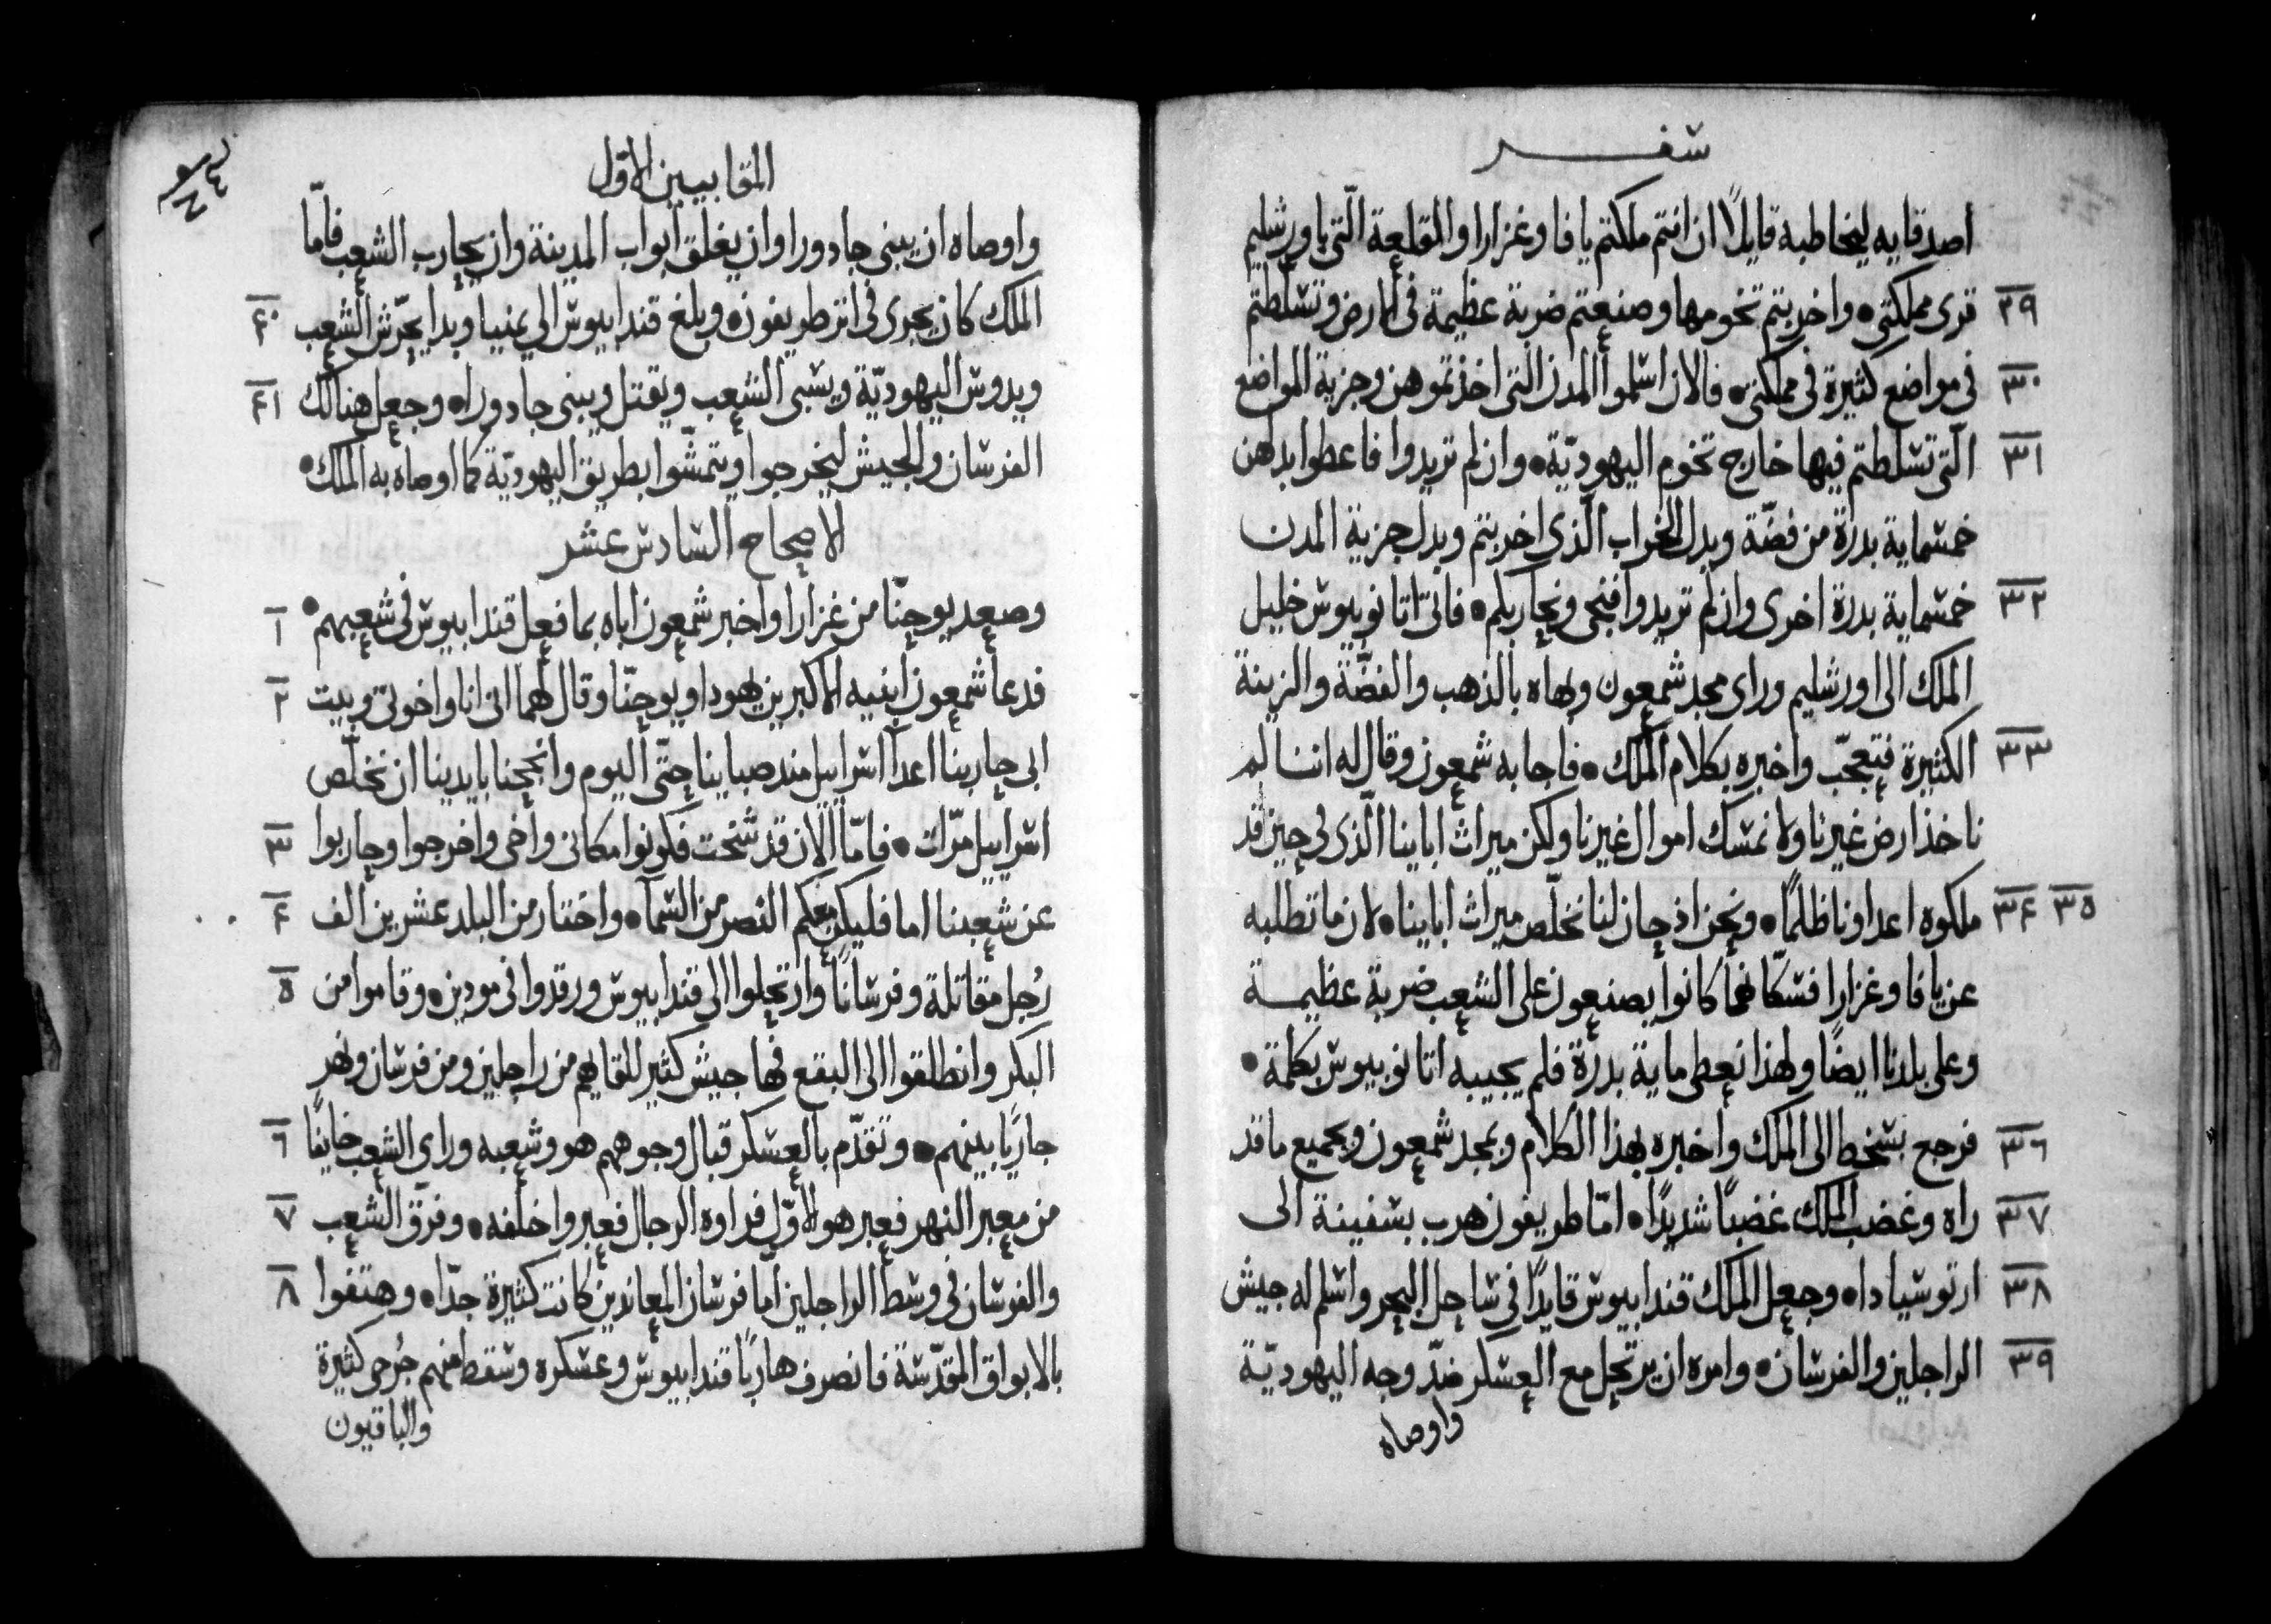 سفر
اصدقايه ليخاطبه قايلًا ان انتم ملكتم يافا وغزارا والقلعة الّتي باورشليم
٢٩ قرى مملكتي • واخربتم تخومها وصنعتم ضربة عظيمة في الارض وتسلّطتم
٣٠ في مواضع كثيرة في مملكتي • فالان اسلموا المدن الّتي اخذتموهن وجزية المواضع
٣١ الّتي تسلطتم فيها خارج تخوم اليهوديّة • وان لم تريدوا فاعطوا بدلهن
خمسماية بدرة من فضّة وبدل الخراب الّذي اخربتم وبدل جزية المدن
٣٢ خمسماية بدرة اخرى وان لم تريدوا فنجي ونحاربكم • فاتى اتانوبيوس خليل
الملك الى اورشليم وراى مجد شمعون وبهاه بالذهب والفضّة والزينة
٣٣ الكثيرة فتعجّب واخبره بكلام الملك • فاجابه شمعون وقال له اننا لم
ناخذ ارض غيرنا ولا نمسك اموال غيرنا ولكن ميراث اباينا الّذي لي حين قد
٣٤ ٣٥ ملكوه اعداونا ظلمًا • ونحن اذ حان لنا نخلّص ميراث اباينا • لان ما تطلبه
عن يافا وغزارا فسكّانهما كانوا يصنعون على الشعب ضربة عظيمة
وعلى بلدنا ايضًا ولهذا نعطي ماية بدرة فلم يجيبه اتانوبيوس بكلمة •
٣٦ فرجع بسخط الى الملك واخبره بهذا الكلام وبمجد شمعون وبجميع ما قد
٣٧ راه وغضب الملك غضبًا شديدًا • امّا طريفون هرب بسفينة الى
٣٨ ارتوسيادا • وجعل الملك قندابيوس قايدًا في ساحل البحر واسلم له جيش
٣٩ الراجلين والفرسان • وامره ان يرتحل مع العسكر ضدّ وجه اليهوديّة
واوصاه
المقابيين الاوّل
واوصاه ان يبني جادورا وان يغلق ابواب المدينة وان يحارب الشعب فامّا
٤٠ الملك كان يجرى في اثر طريفون • وبلغ قندابيوس الى يمنيا وبدا يحرّش الشعب
٤١ ويدوس اليهوديّة ويسبى الشعب ويقتل ويبنى جادورا • وجعل هنالك
الفرسان والجيش ليخرجوا ويتمشّوا بطريق اليهوديّة كما اوصاه به الملك •
الاصحاح السادس عشر
١ وصعد يوحنّا من غزارا واخبر شمعون اباه بما فعل قندابيوس في شعبهم •
٢ فدعا شمعون ابنيه الاكبرين يهودا ويوحنّا وقال لهما انى انا واخوتى وبيت
ابى حاربنا اعدا اسراييل منذ صباينا حتّى اليوم وانجحنا بايدينا ان نخلّص
٣ اسراييل مرّات • فامّا الان قد شخت فكونوا مكانى واخى واخرجوا وحاربوا
٤ عن شعبنا اما فليكن معكم النصر من السما • واختار من البلد عشرين الف
٥ رُجل مقاتلة وفرسانًا وارتحلوا الى قندابيوس ورقدوا في مودين • وقاموا من
البكر وانطلقوا الى البقع فها جيش كثير للقايهم من راجلين ومن فرسان ونهر
٦ جاريًا بينهم • وتقدّم بالعسكر قبال وجوههم هو وشعبه وراى الشعب خايفًا
٧ من معبر النهر فعبر هو الاوّل فراوه الرجال فعبروا خلفه • وفرّق الشعب
٨ والفرسان في وسط الراجلين امّا فرسان المعاندين كانت كثيرة جدّا • وهتفوا
بالابواق المقدّسة فانصرف هاربًا قندابيوس وعسكره وسقط منهم جُرحى كثيرة
والباقيون